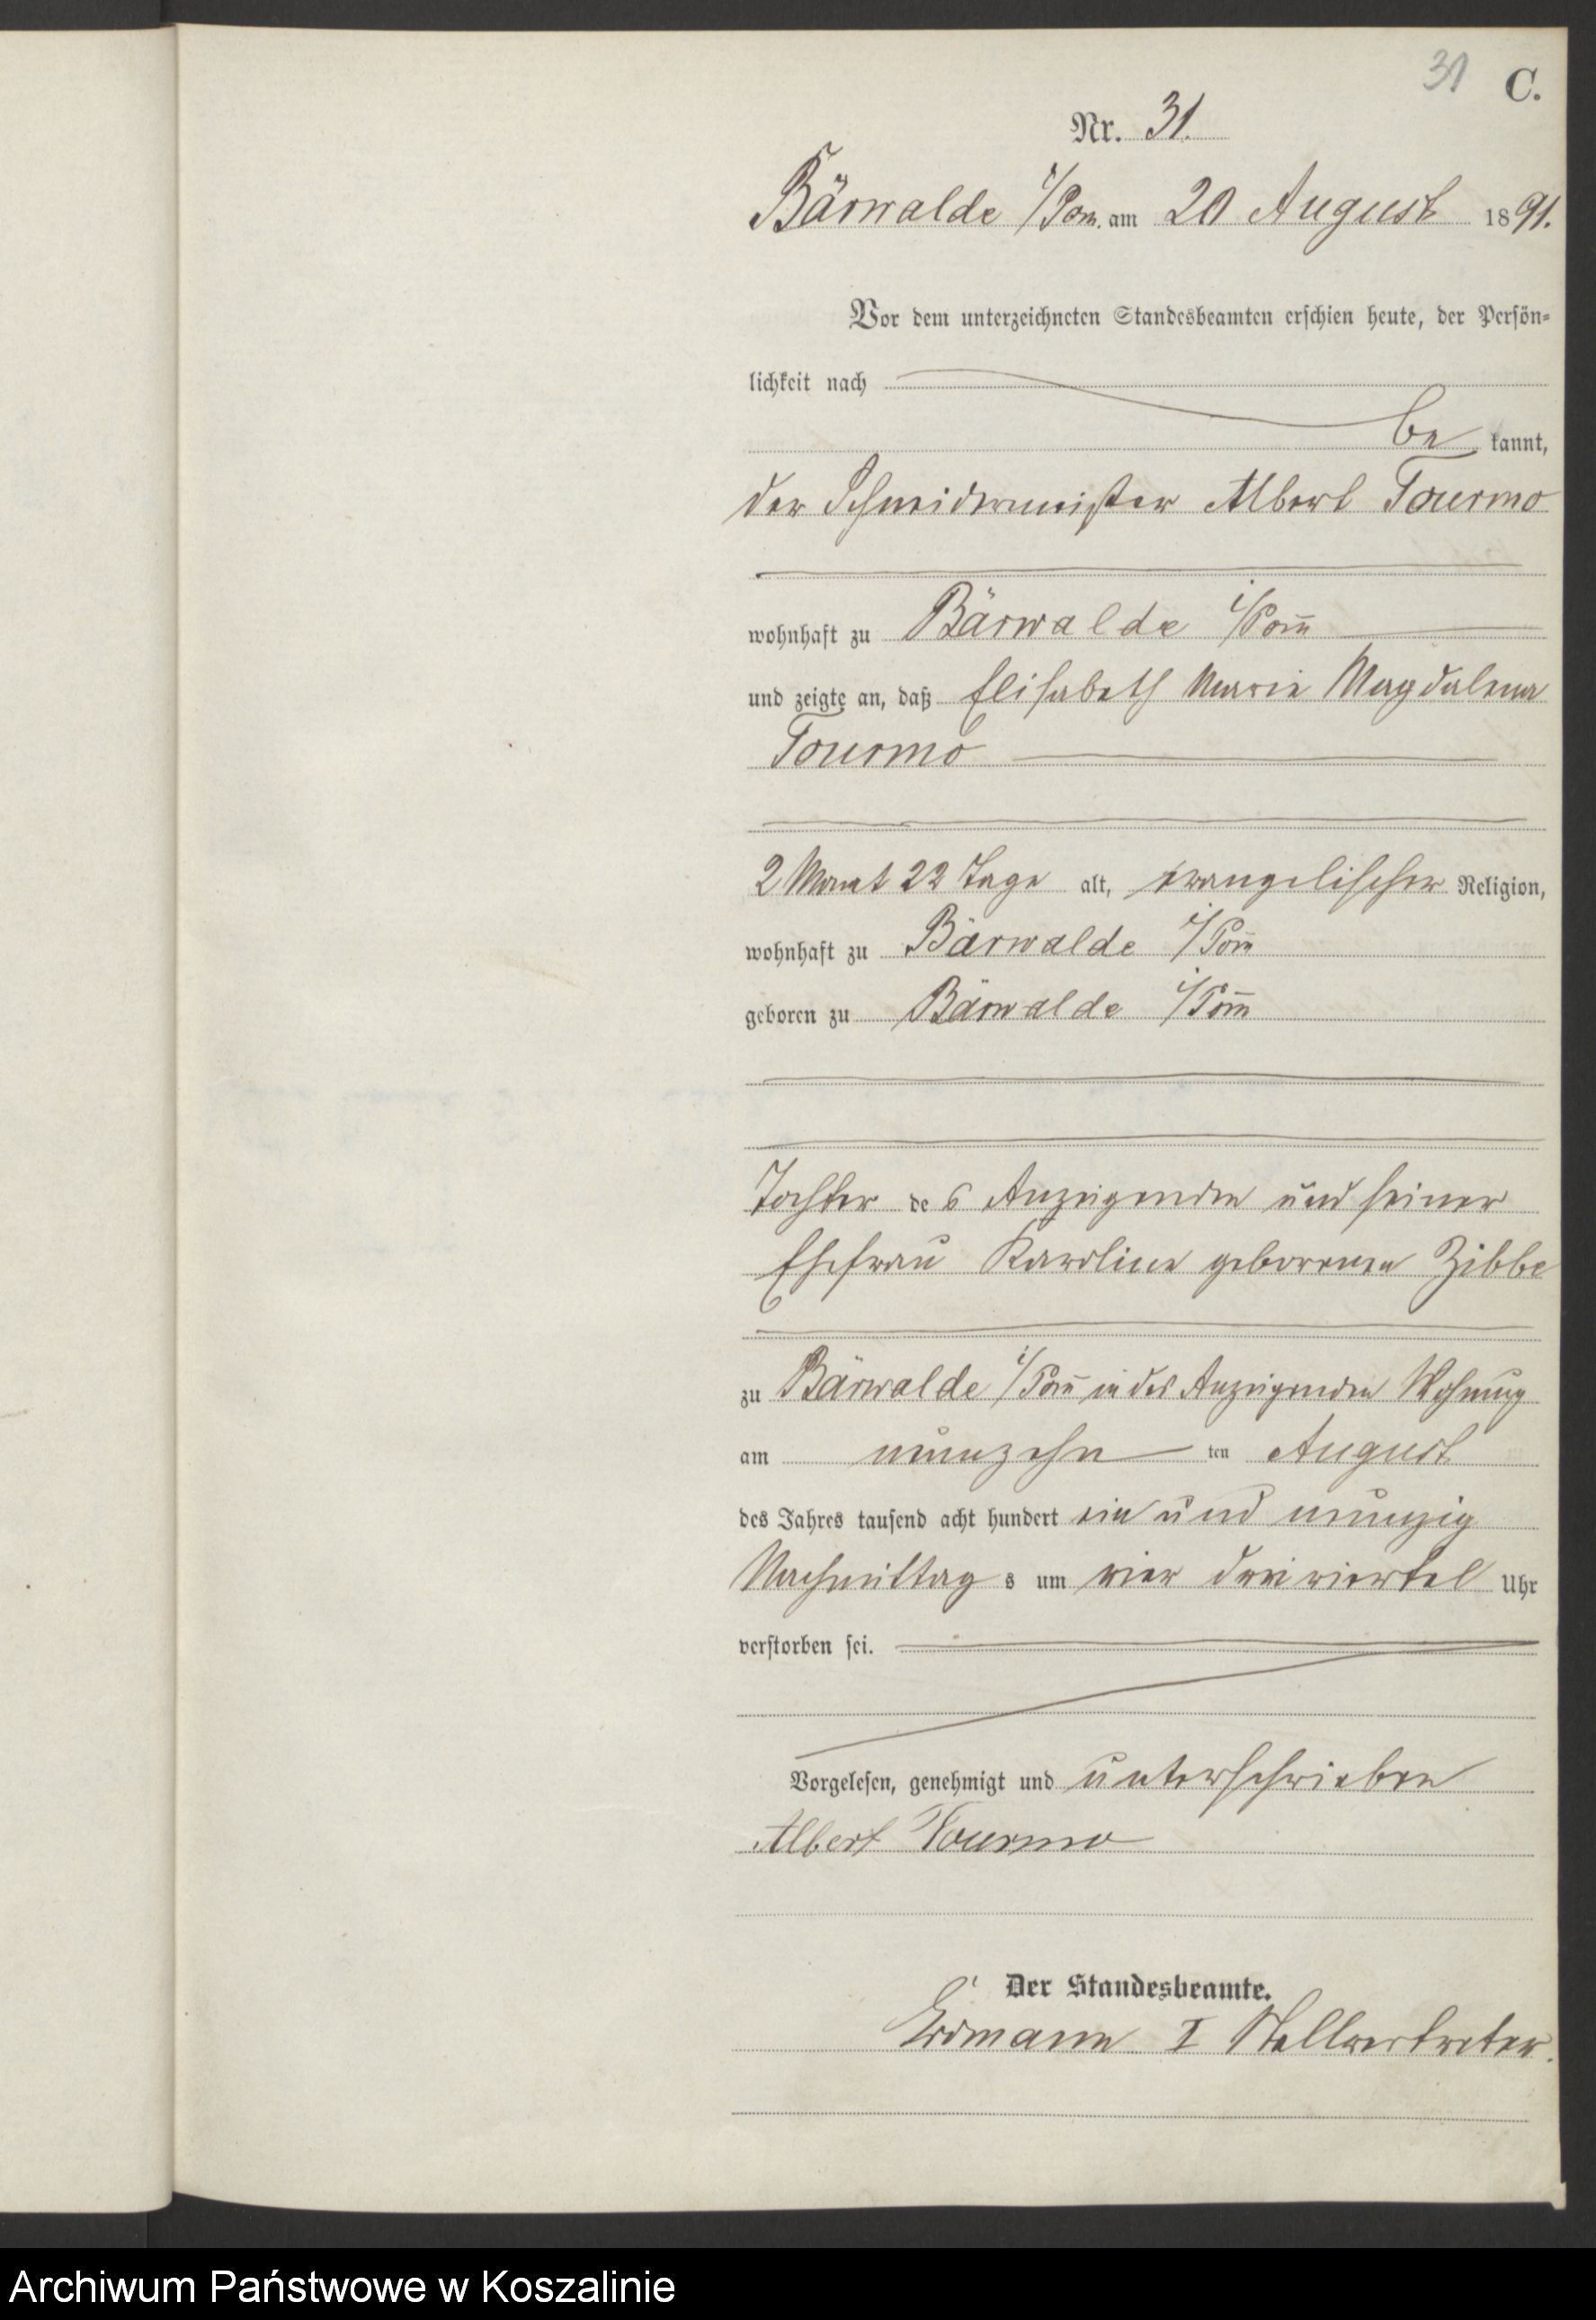 31 C.
Nr. 31.
Bärwalde i/Pom. am 20 August 1891.
Vor dem unterzeichneten Standesbeamten erschien heute, der Persön-
lichkeit nach
be kannt,
der Schneidermeister Albert Tourmo
wohnhaft zu Bärwalde i/Pom̅
und zeigte an, daß Elisabeth Marie Magdalena
Tourmo
2 Monat 22 Tage alt, evangelischer Religion,
wohnhaft zu Bärwalde i/Pom̅
geboren zu Bärwalde i/Pom̅
Tochter des Anzeigenden und seiner
Ehefrau Karoline geborenen Zibbe
zu Bärwalde i/Pom̅ in des Anzeigenden Wohnung
am neunzehn ten August
des Jahres tausend acht hundert ein und neunzig
Nachmittag s um vier dreiviertel Uhr
verstorben sei.
Vorgelesen, genehmigt und unterschrieben
Albert Tourmo
Der Standesbeamte.
Erdmann I Stellvertreter.
Archiwum Państwowe w Koszalinie